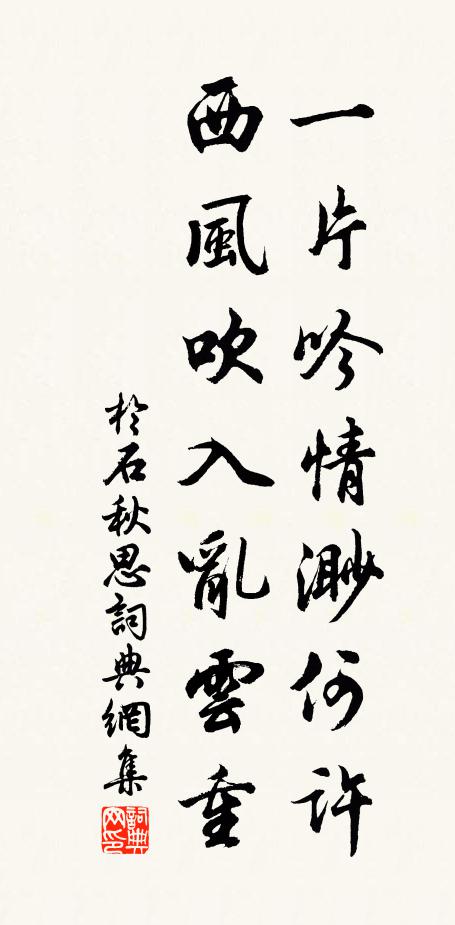 一片吟情渺何許
西風吹入亂雲重
於石秋思詞典網集
詞典网印